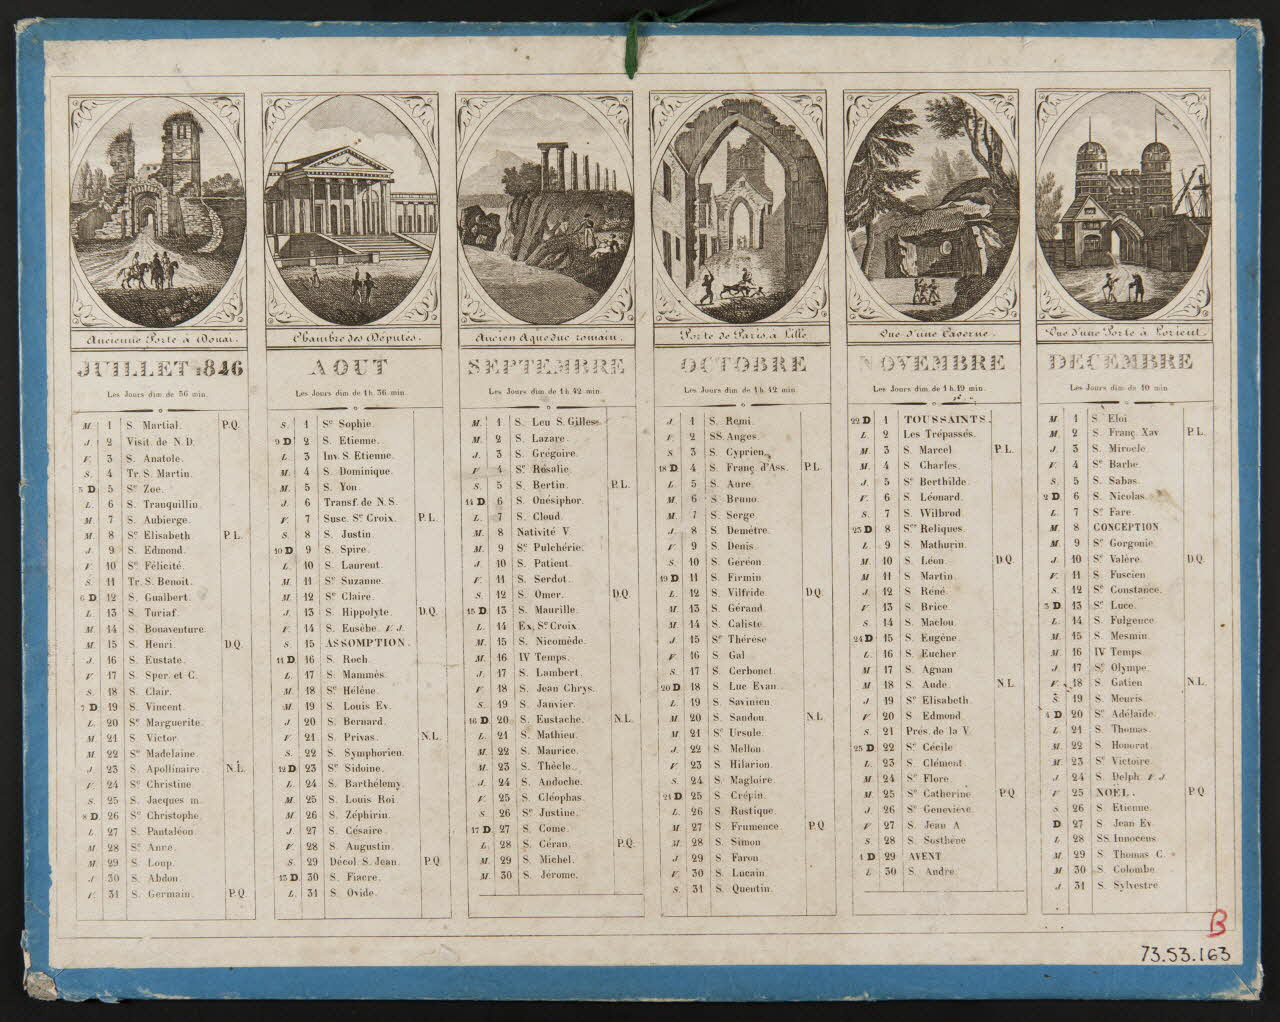 Ancienne Porte à Douai.
JUILLET 1846
Les Jours dim de 56 min
M. 1 S. Martial. P.Q.
J. 2 Visit. de N.D.
V. 3 S. Anatole.
S. 4 Tr. S. Martin.
5 D 5 Se Zoe.
L. 6 S. Tranquillin
M. 7 S. Aubierge.
M. 8 Se Elisabeth P.L.
J. 9 S. Edmond.
V. 10 Se Félicité.
S. 11 Tr. S. Benoit.
6 D 12 S. Gualbert.
L. 13 S. Turiaf.
M. 14 S. Bonaventure.
M. 15 S. Henri. D.Q.
J. 16 S. Eustate.
V. 17 S. Sper. et C.
S. 18 S. Clair.
7 D 19 S. Vincent.
L. 20 Se Marguerite.
M. 21 S. Victor.
M. 22 Se Madelaine.
J. 23 S. Apollinaire. N.L.
V. 24 Se Christine.
S. 25 S. Jacques m.
8 D. 26 Se Christophe.
L. 27 S. Pantaléon.
M 28 Se Anne.
M 29 S. Loup.
J. 30 S. Abdon.
V. 31 S. Germain. P.Q.
Chambre des Députes.
AOUT
Les Jours dim de 1 h. 36 min
S. 1 Se Sophie.
9 D 2 S. Etienne.
L. 3 Inv. S. Etienne.
M. 4 S. Dominique.
M. 5 S. Yon.
J. 6 Transf. de N.S.
V. 7 Susc. Se Croix. P.L.
S. 8 S. Justin.
10 D 9 S. Spire.
L. 10 S. Laurent.
M. 11 Se Suzanne.
M. 12 Se Claire.
J. 13 S. Hippolyte. D.Q.
V. 14 S. Eusèbe. V.J.
S. 15 ASSOMPTION.
11 D. 16 S. Roch.
L. 17 S. Mammés.
M. 18 Se Hélène.
M. 19 S. Louis Ev.
J. 20 S. Bernard.
V. 21 S. Privas. N.L.
S. 22 S. Symphorien.
12 D 23 Se Sidoine.
L. 24 S. Barthélemy.
M. 25 S. Louis Roi
M. 26 S. Zéphirin.
J. 27 S. Césaire.
V. 28 S. Augustin.
S. 29 Décol. S. Jean. P.Q
13 D. 30 S. Fiacre.
L. 31 S. Ovide.
Ancien Aqueduc romain.
SEPTEMBRE
Les Jours dim de 1 h. 42 min
M. 1 S. Leu S. Gilles.
M. 2 S. Lazare.
J. 3 S. Grégoire.
V. 4 Se Rosalie.
S. 5 S. Bertin. P.L.
14 D 6 S. Onésiphor.
L. 7 S. Cloud.
M. 8 Nativité V.
M. 9 Se Pulchérie.
J. 10 S. Patient.
V. 11 S. Serdot.
S. 12 S. Omer. D.Q.
15 D 13 S. Maurille.
L. 14 Ex. Se Croix.
M. 15 S. Nicomède.
M. 16 IV Temps.
J. 17 S. Lambert.
V. 18 S. Jean Chrys.
S. 19 S. Janvier.
16 D. 20 S. Eustache. N.L.
L. 21 S. Mathieu.
M. 22 S. Maurice.
M. 23 S. Thècle.
J. 24 S. Andoche.
V. 25 S. Cléophas.
S. 26 Se Justine.
17 D. 27 S. Come.
L. 28 S. Céran. P.Q.
M. 29 S. Michel.
M. 30 S. Jérome.
Porte de Paris à Lille
OCTOBRE
Les Jours dim de 1 h. 42 min.
J 1 S. Remi.
V. 2 SS. Anges.
S 3 S. Cyprien.
18 D 4 S. Franç d'Ass. P.L.
L. 5 S. Aure.
M. 6 S. Bruno.
M. 7 S. Serge.
J. 8 S. Demètre.
V. 9 S. Denis.
S. 10 S. Geréon.
19 D 11 S. Firmin
L. 12 S. Vilfride D.Q.
M. 13 S. Gérand.
M. 14 S. Caliste.
J. 15 Se Thérèse
V. 16 S. Gal
S. 17 S. Cerbonet.
20 D 18 S. Luc Evan.
L. 19 S. Savinien.
M. 20 S. Sandou. N.L
M. 21 Se Ursule.
J. 22 S. Mellon.
V 23 S. Hilarion.
S. 24 S. Magloire.
21 D 25 S. Crépin.
L. 26 S. Rustique.
M. 27 S. Frumence P.Q
M. 28 S. Simon
J. 29 S. Faron
V. 30 S. Lucain.
S. 31 S. Quentin.
Vue d'une Caverne.
NOVEMBRE
Les Jours dim de 1 h. 19 min.
22 D 1 TOUSSAINTS.
L 2 Les Trépassés.
M. 3 S. Marcel P.L.
M 4 S. Charles.
J. 5 Se Berthilde.
V. 6 S. Léonard.
S. 7 S. Wilbrod
23 D 8 Stes Reliques.
L. 9 S. Mathurin.
M. 10 S. Léon. D.Q.
M 11 S. Martin.
J. 12 S. René.
V. 13 S. Brice.
S. 14 S. Maclou.
24 D 15 S. Eugène.
L. 16 S. Eucher.
M 17 S. Agnan
M 18 S. Aude. N.L.
J 19 Se Elisabeth.
V. 20 S. Edmond.
S. 21 Prés. de la V.
25 D 22 Se Cécile
L. 23 S. Clément.
M 24 Se Flore.
M 25 Se Catherine P.Q.
J. 26 Se Geneviève.
V 27 S. Jean A
S. 28 S. Sosthène
1 D 29 AVENT
L 30 S. André.
Vue d'une Porte à Lorient.
DECEMBRE
Les Jours dim de 10 min.
M 1 S. Eloi
M. 2 S. Franç. Xav P.L.
J. 3 S. Mirocle.
V. 4 Se Barbe.
S. 5 S. Sabas.
2 D 6 S. Nicolas.
L. 7 Se Fare.
M. 8 CONCEPTION.
M. 9 Se Gorgonie.
J. 10 Se Valère. D.Q.
V. 11 S. Fuscien.
S. 12 Se Constance.
3 D. 13 Se Luce.
L. 14 S. Fulgence.
M. 15 S. Mesmin.
M. 16 IV Temps.
J. 17 Se Olympe.
V. 18 S. Gatien N.L.
S 19 S. Meuris.
4 D 20 Se Adélaïde.
L. 21 S. Thomas.
M. 22 S. Honorat.
M. 23 Se Victoire.
J 24 S. Delph. V.J.
V 25 NOËL. P.Q
S. 26 S. Etienne.
D 27 S. Jean Ev.
L 28 SS. Innocens.
M 29 S. Thomas C.
M 30 S. Colombe.
J. 31 S. Sylvestre
B
73.53.163